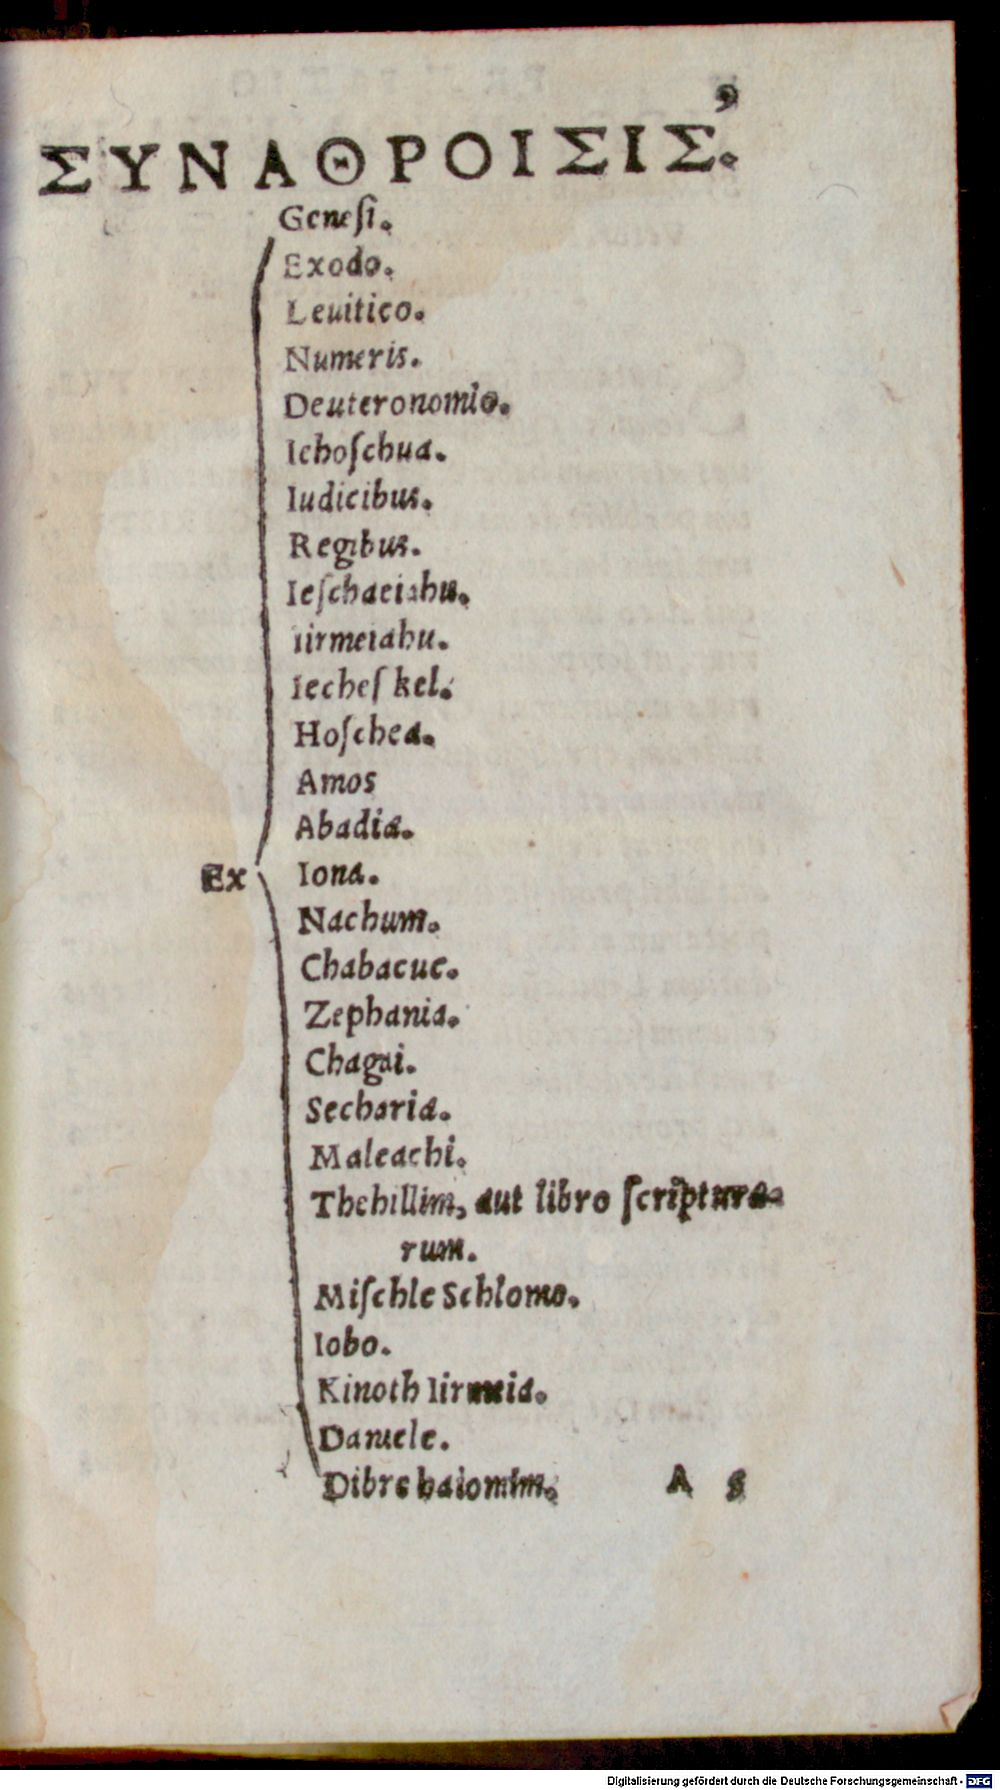 9
ΣΥΝΑΘΡΟΙΣΙΣ.
Geneſi.
Exodo.
Leuitico.
Numeris.
Deuteronomio.
Iehoſchua.
Iudicibus.
Regibus.
Ieſchaeiahu.
Iirmeiahu.
Iecheſkel.
Hoſchea.
Amos
Abadia.
Ex Iona.
Nachum.
Chabacuc.
Zephania.
Chagai.
Secharia.
Maleachi.
Thehillim, aut libro ſcriptura-
rum.
Miſchle Schlomo.
Iobo.
Kinoth Iirmeia.
Daniele.
Dibre haiomim. A 5
Digitalisierung gefördert durch die Deutsche Forschungsgemeinschaft - DFG